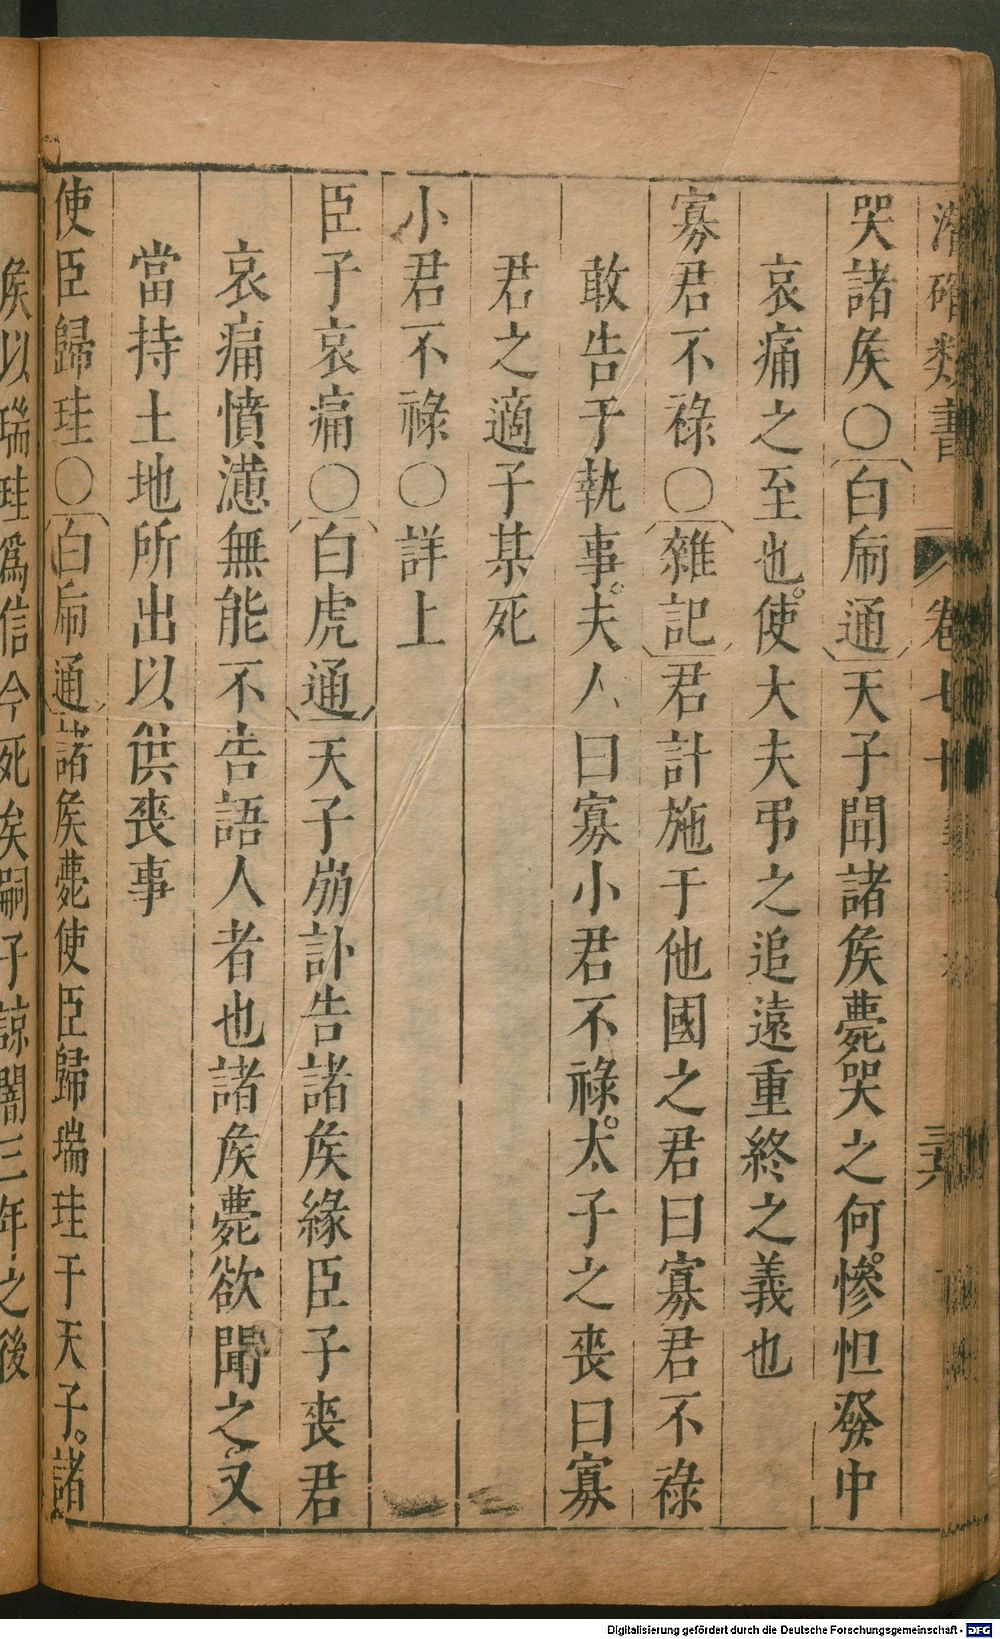 潛確類書 卷七十 三六
哭諸矦○白䖍通天子聞諸矦薨哭之何。慘怛發中
哀痛之至也。使大夫弔之追遠重終之義也
寡君不祿○雜記君訃施于他國之君曰寡君不祿
敢告于執事。夫人曰寡小君不祿。太子之喪曰寡
君之適子某死
小君不祿○詳上
臣子哀痛○白虎通天子崩訃告諸矦緣臣子喪君
哀痛憤懣無能不告語人者也諸矦薨欲聞之。又
當持土地所出以供喪事
使臣歸珪○白䖍通諸矦薨使臣歸瑞珪于天子。諸
矦以瑞珪爲信今死矣嗣子諒闇三年之後
Digitalisierung gefördert durch die Deutsche Forschungsgemeinschaft - DFG